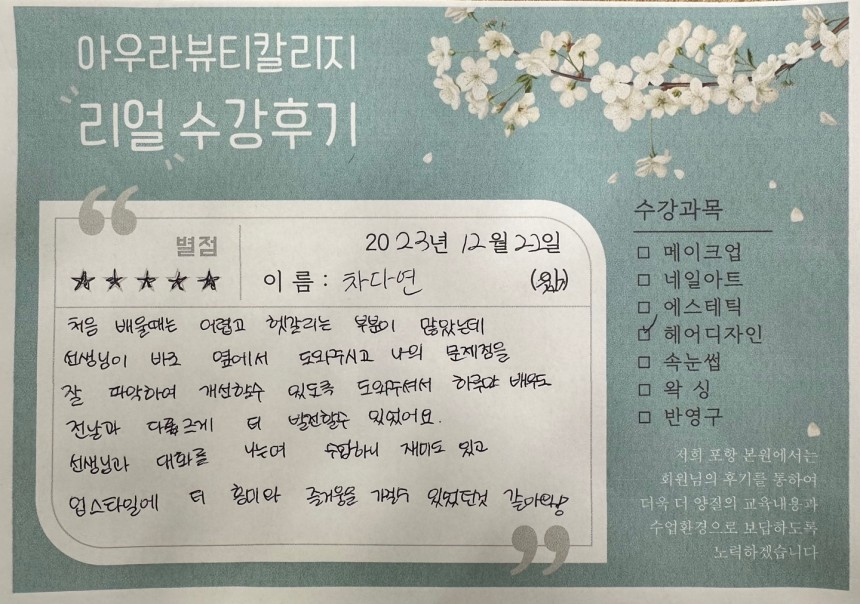 아우라뷰티칼리지
"리얼 수강후기"
별점
★★★★★
2023년 12월 21일
이 름 : 차다연
처음 배울때는 어렵고 헷갈리는 부분이 많았는데
선생님이 바로 옆에서 도와주시고 나의 문제점을
잘 파악하여 개선할수 있도록 도와주셔서 하루만 배워도
전날과 다르게 더 발전할수 있었어요.
선생님과 대화를 나누며 수업하니 재미도 있고
업스타일에 더 흥미와 즐거움을 가질수 있었던것 같아요
수강과목
□ 메이크업
□ 네일아트
□ 에스테틱
☑ 헤어디자인
□ 속눈썹
□ 왁 싱
□ 반영구
저희 포항 본원에서는
회원님의 후기를 통하여
더욱 더 양질의 교육내용과
수업환경으로 보답하도록
노력하겠습니다